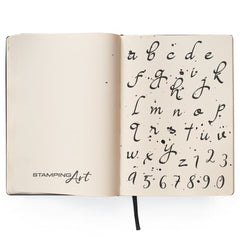 STAMPING
Art
a b c d e
f g h i j k
l m n o p
q r s t u ü
v w x y z 1 2 3
4 5 6 7 8 9 0